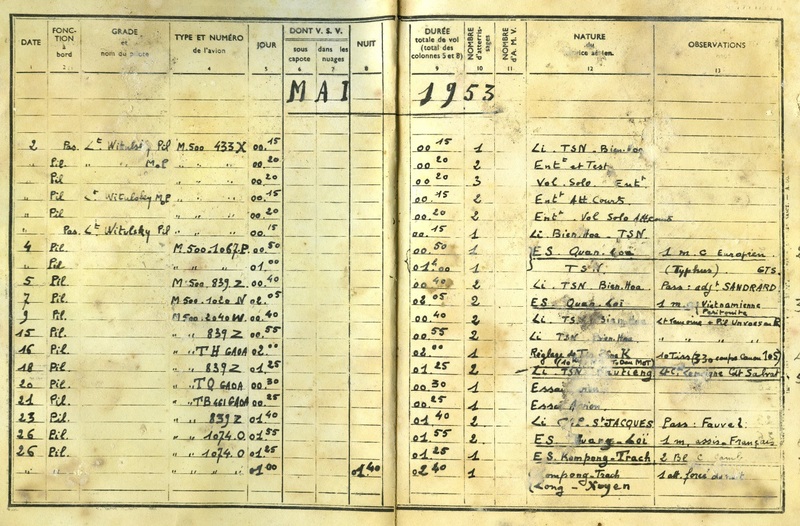 DATE FONCTION à bord GRADE et nom du pilote TYPE ET NUMÉRO de l'avion JOUR DONT V. S. V. sous capote dans les nuages NUIT DURÉE totale de vol (total des colonnes 5 et 8) NOMBRE d'atterrissages NOMBRE d'A.M.V. NATURE OBSERVATIONS
1 2 4 5 6 7 8 9 10 11 12 13
MAI 1953
2 Pas. Lt Witulsky Pil M.500 433X 00.15 00.15 1 Li. TSN. Bien-hoa
" Pil " " M.P " " " 00.20 00.20 2 Entt et Test
Pil " " " 00.20 00.20 3 Vol. Solo Entt
" Pil Lt Witulsky M.P " " " 00.15 00.15 2 Entt Att. Courts
" Pil " " " 00.20 00.20 2 Entt. Vol Solo Att. Courts
" Pas. Lt Witulsky Pil " " " 00.15 00.15 1 Li. Bien-Hoa - TSN.
4 Pil. M.500-1067.P. 00.50 00.50 1 ES. Quan-Loi 1 m. C Européen.
" Pil. " " " 01.00 1 TSN. (Typhus) GTS.
5 Pil. M.500. 839 Z. 00.40 00.40 2 Li. TSN. Bien.Hoa. Pass: adjt SANDRARD
7 Pil. M.500-1020 N 02.05 02.05 2 ES. Quan-Loï 1 m. Vietnamienne Péritonite
9 Pil. M.500.2040W. 00.40 00.40 2 Li. TSN Bien-Hoa
15 Pil. " " 839 Z 00.55 00.55 2 Li. TSN Bien.Hoa. " " "
16 Pil. " " TH GAOA 02.00 02.00 1 Réglage de Tir K 10 Tirs (330 coups Canon 105)
18 Pil. " " 839 Z 01.25 01.25 2 Li. TSN
20 Pil. " " TQ GAOA 00.30 00.30 1 Essai
21 Pil. " " TB 461 GAOA 00.25 00.25 1 Essai Avion
23 Pil. " " 839 Z 01.40 01.40 2 Li C.P. St JACQUES Pass: Fauvel.
26 Pil. " " 1074.O 01.55 01.55 2 ES. Loï 1 m. assis. Français
26 Pil. " " 1074.O 01.25 01.25 1 E.S. Kompong-Trach 2 Bl C
" " " " " " 01.00 01.40 02.40 1 Kompong-Trach Long-Xuyen 1 att. forcé